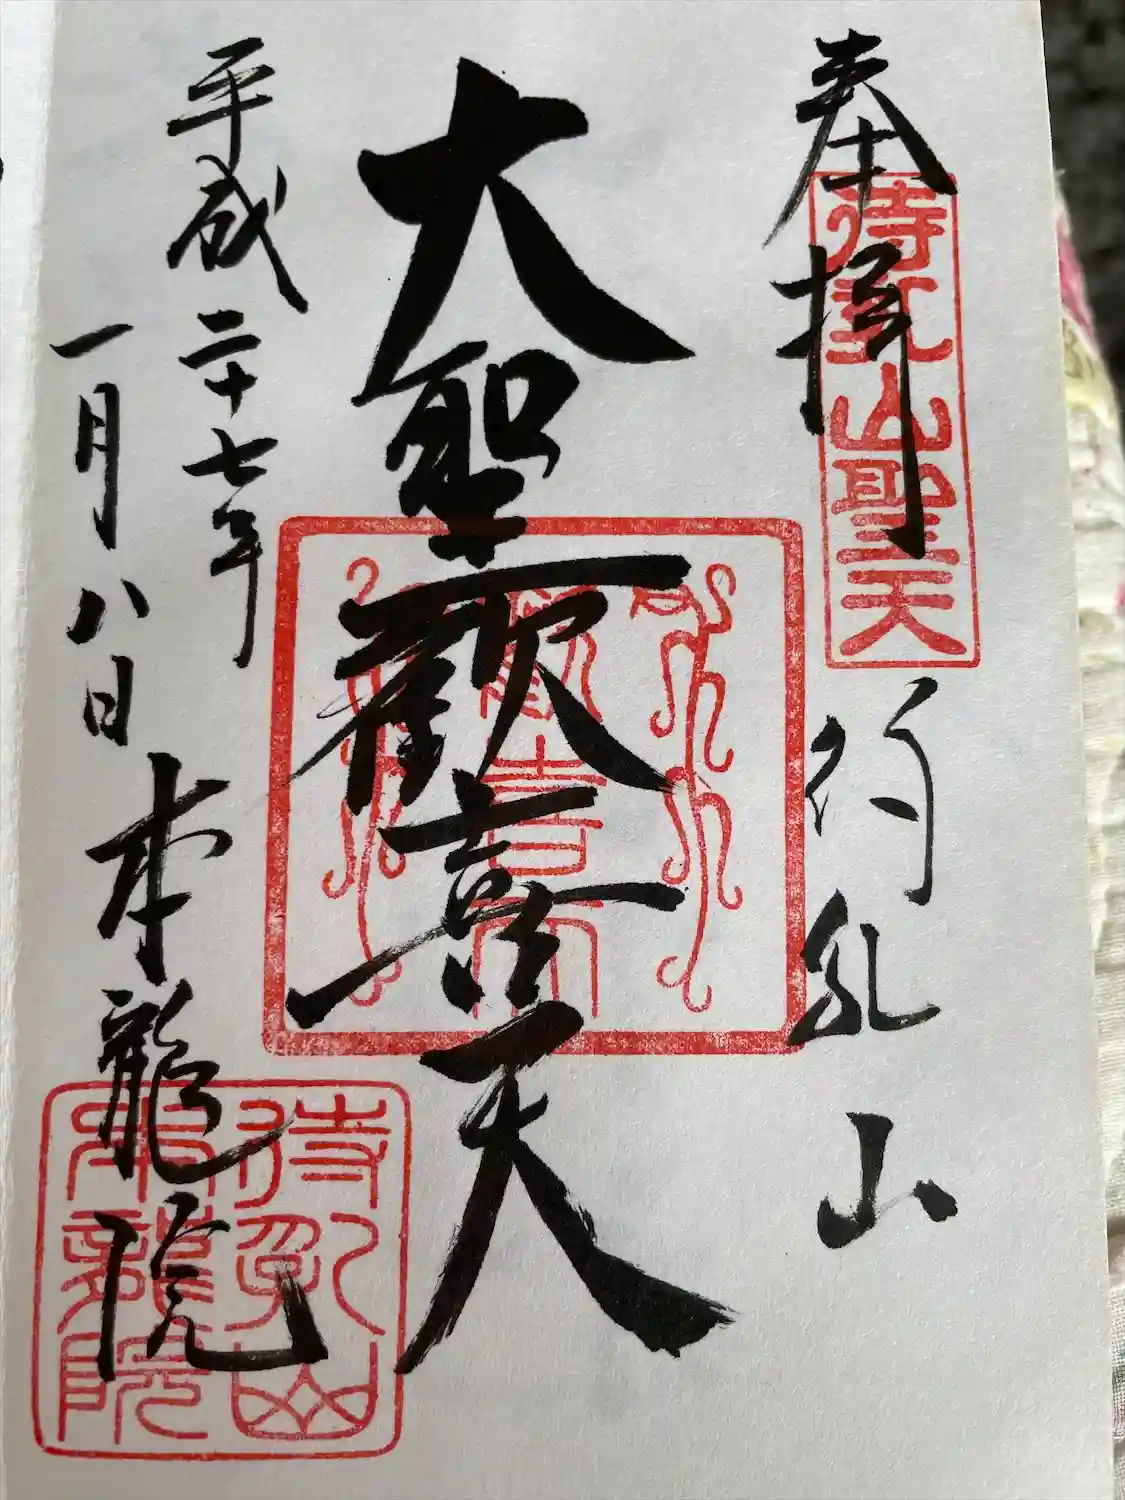 奉拝
待乳山聖天
待乳山
大聖歓喜天
歓喜天
平成二十七年
一月八日
本龍院
待乳山
本龍院